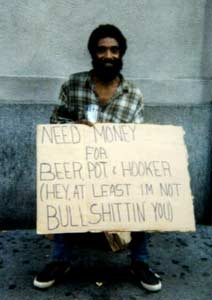 NEED MONEY
FOR
BEER, POT & HOOKER
(HEY, AT LEAST I'M NOT
BULLSHITTIN' YOU)